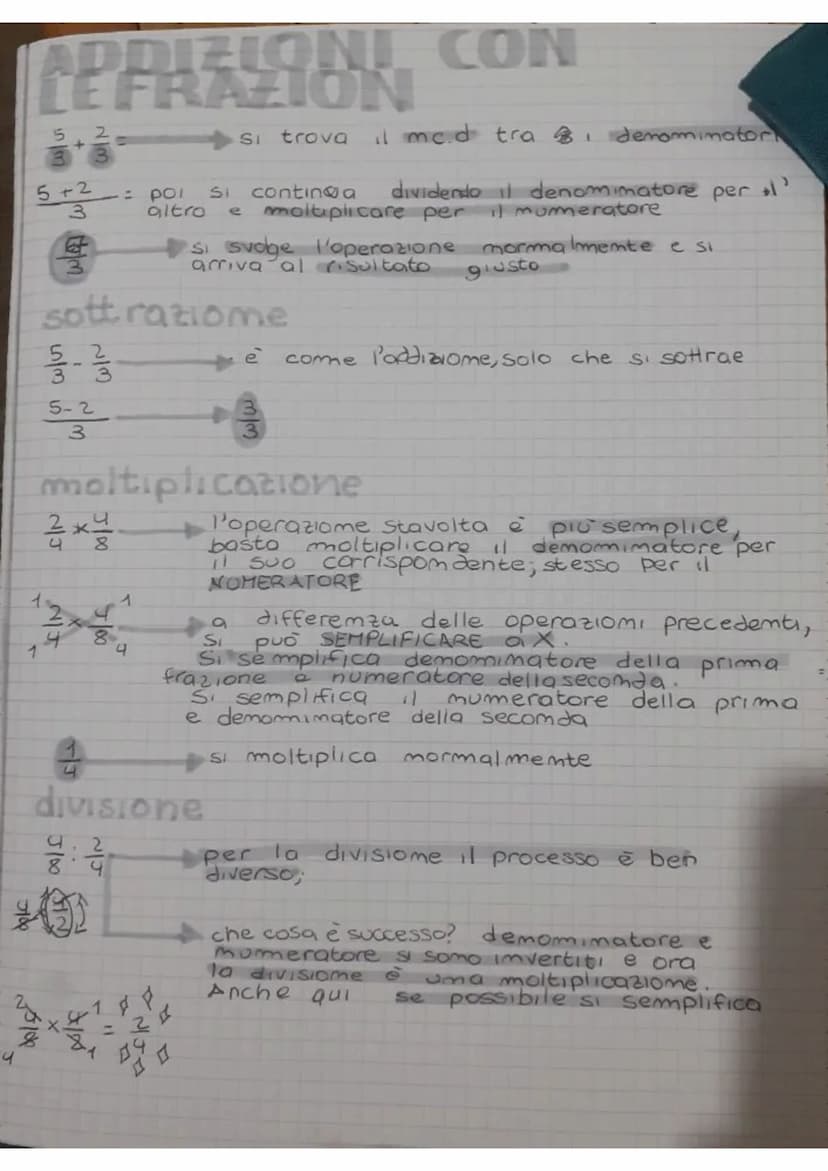 ADDIZIONI CON
LE FRAZION
5/3 + 2/3 = si trova il mc.d tra i denominatori
5+2/3 = poi si continua dividendo il denominatore per l'
altro e moltiplicare per il numeratore
7/3 si svolge l'operazione normalmente e si
arriva al risultato giusto
sottrazione
5/3 - 2/3 è come l'addizione, solo che si sottrae
5-2/3 3/3
moltiplicazione
2/4 x 4/8 l'operazione stavolta è più semplice,
basta moltiplicare il denominatore per
il suo corrispondente; stesso per il
NUMERATORE
1 2/4 x 4/8 1 a differenza delle operazioni precedenti,
1 4 si può SEMPLIFICARE a X.
Si semplifica denominatore della prima
frazione e numeratore della seconda.
Si semplifica il numeratore della prima
e denominatore della seconda
1/4 si moltiplica normalmente
divisione
4/8 : 2/4 per la divisione il processo è ben
diverso;
che cosa è successo? denominatore e
numeratore si sono invertiti e ora
la divisione è una moltiplicazione.
Anche qui se possibile si semplifica
2 4/8 x 4/8 1 = 2/4
4 1